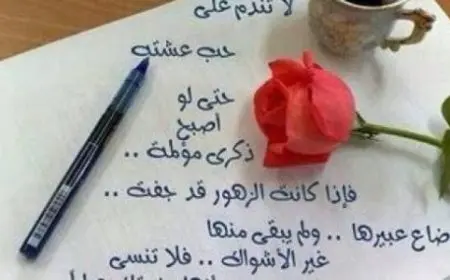 لا تندم على
حب عشته
حتى لو
اصبح
ذكرى مؤلمة ..
فإذا كانت الزهور قد جفت ..
ضاع عبيرها .. ولم يبقى منها
غير الأشواك .. فلا تنسى